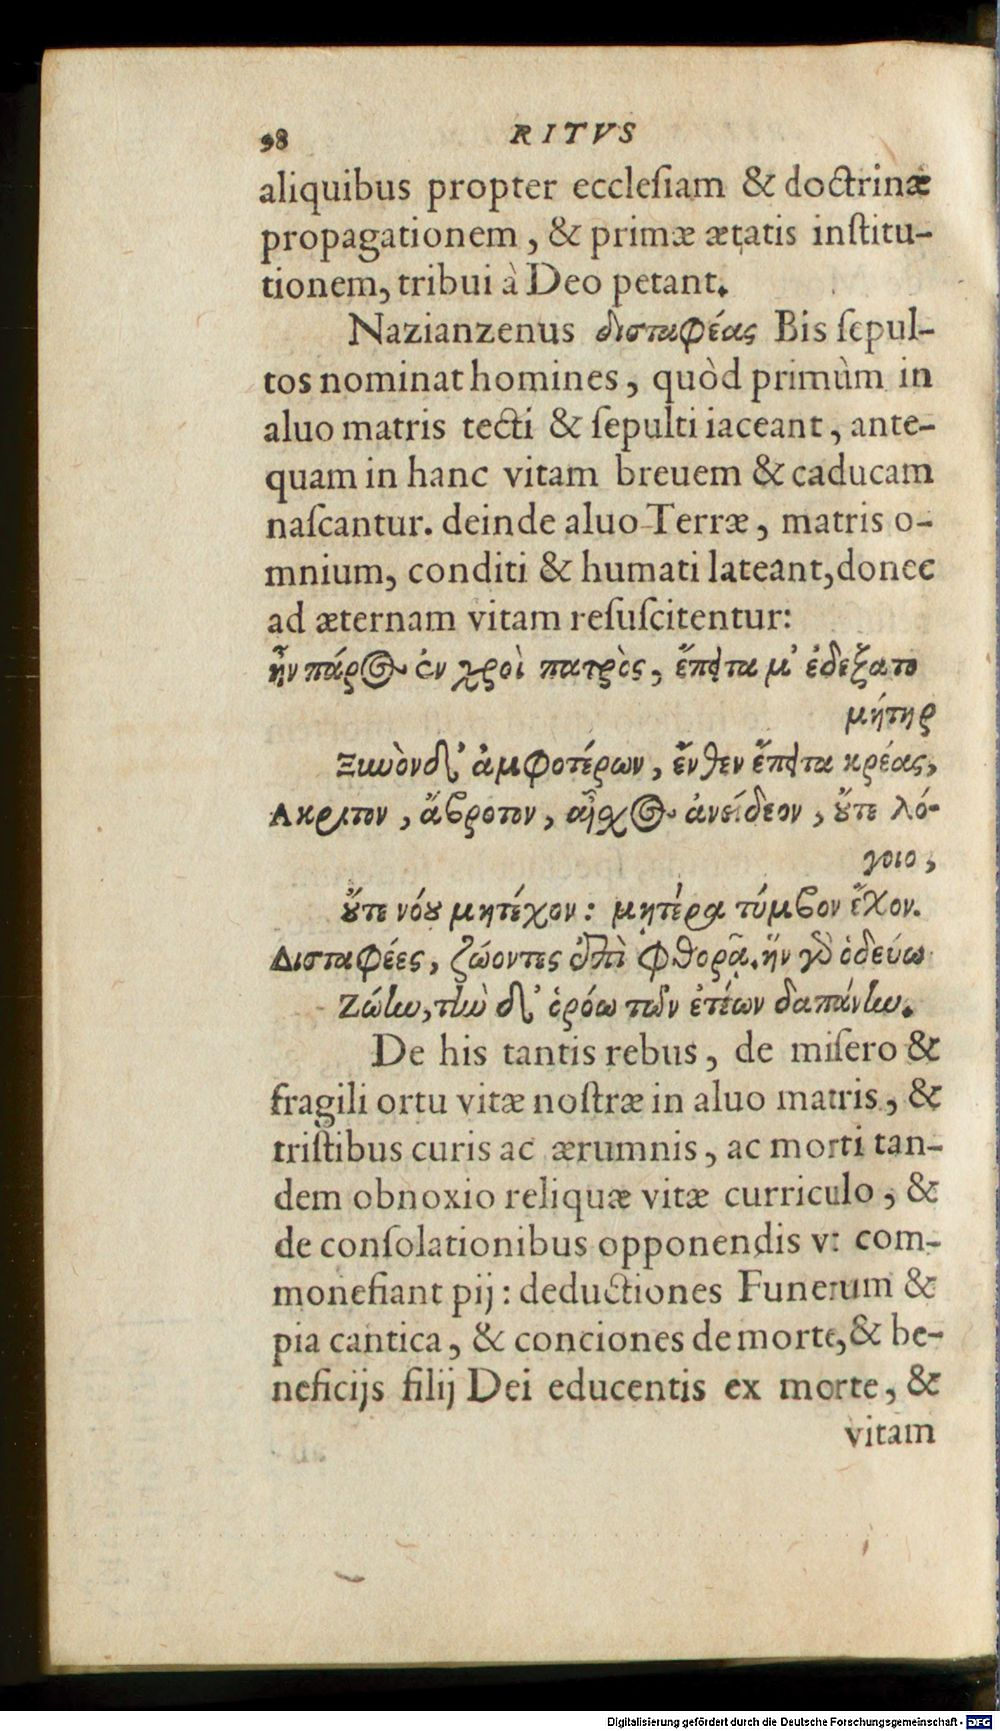 98 RITVS
aliquibus propter eccleſiam & doctrinæ
propagationem, & primæ ætatis inſtitu-
tionem, tribui à Deo petant.
Nazianzenus δισταφέας Bis ſepul-
tos nominat homines, quòd primùm in
aluo matris tecti & ſepulti iaceant, ante-
quam in hanc vitam breuem & caducam
naſcantur. deinde aluo Terræ, matris o-
mnium, conditi & humati lateant, donec
ad æternam vitam reſuſcitentur:
ἦν πάρος ἐν χροῒ πατρὸς, ἔπειτα μ' ἐδέξατο
μήτηρ
Ξυνὸν δ' ἀμφοτέρων, ἔνθεν ἔπειτα κρέας,
Ακριτον, ἄβροτον, αἶχος ἀνείδεον, οὔτε λό-
γοιο,
οὔτε νόου μητέχον: μητέρα τύμβον ἔχον.
Δισταφέες, ζώοντες ἐπὶ φθορᾷ. ἥν γὰρ ὁδεύω
Ζώην, τὴν δ' ὁρόω τῶν ἐτέων δαπάνην.
De his tantis rebus, de miſero &
fragili ortu vitæ noſtræ in aluo matris, &
triſtibus curis ac ærumnis, ac morti tan-
dem obnoxio reliquæ vitæ curriculo, &
de conſolationibus opponendis vt com-
monefiant pij: deductiones Funerum &
pia cantica, & conciones de morte, & be-
neficijs filij Dei educentis ex morte, &
vitam
Digitalisierung gefördert durch die Deutsche Forschungsgemeinschaft - DFG